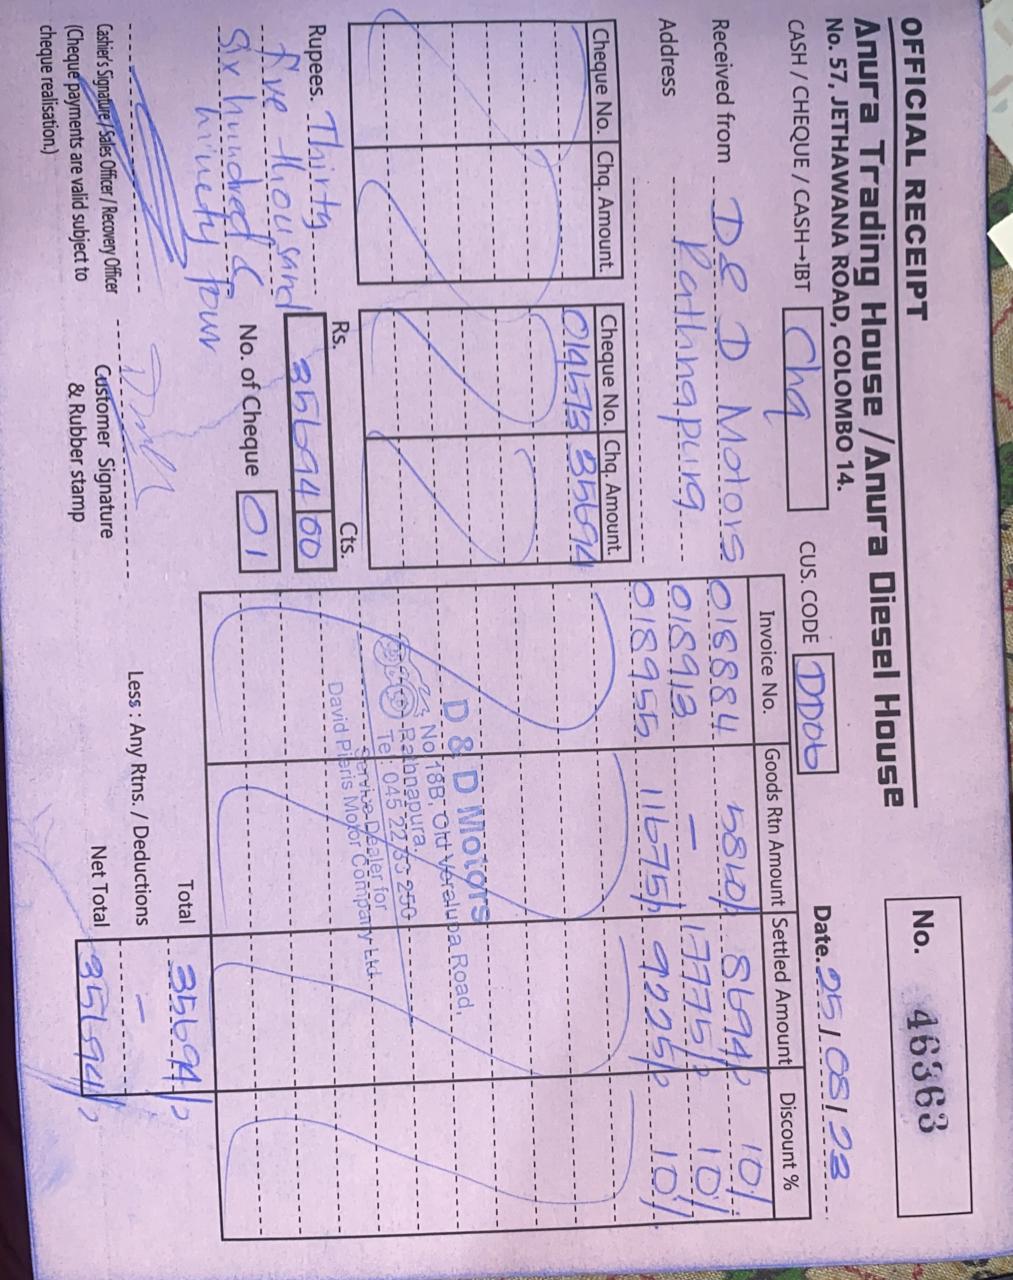 OFFICIAL RECEIPT
No. 46363
Anura Trading House / Anura Diesel House
No. 57, JETHAWANA ROAD, COLOMBO 14.
CASH / CHEQUE / CASH→IBT Chq CUS. CODE DD06 Date. 25/08/23
Received from D & D Motors
Address Rathnapura
Cheque No. Chq. Amount. Cheque No. Chq. Amount.
35694
Invoice No. Goods Rtn Amount Settled Amount Discount %
018884 5810/= 8694/= 10%
018913 - 17775/= 10%
018955 11675/= 9225/= 10%
D & D Motors
No 18B, Old Veralupa Road,
Rathnapura.
Tel: 045 2233 250
Service Dealer for
David Pieris Motor Company Ltd.
Rs. Cts.
Rupees. Thirty
five thousand
six hundred &
ninety four
35694 00
No. of Cheque 01
Total 35694/=
Less : Any Rtns. / Deductions -
Net Total 35694/=
Cashier's Signature / Sales Officer / Recovery Officer
(Cheque payments are valid subject to
cheque realisation.)
Customer Signature
& Rubber stamp